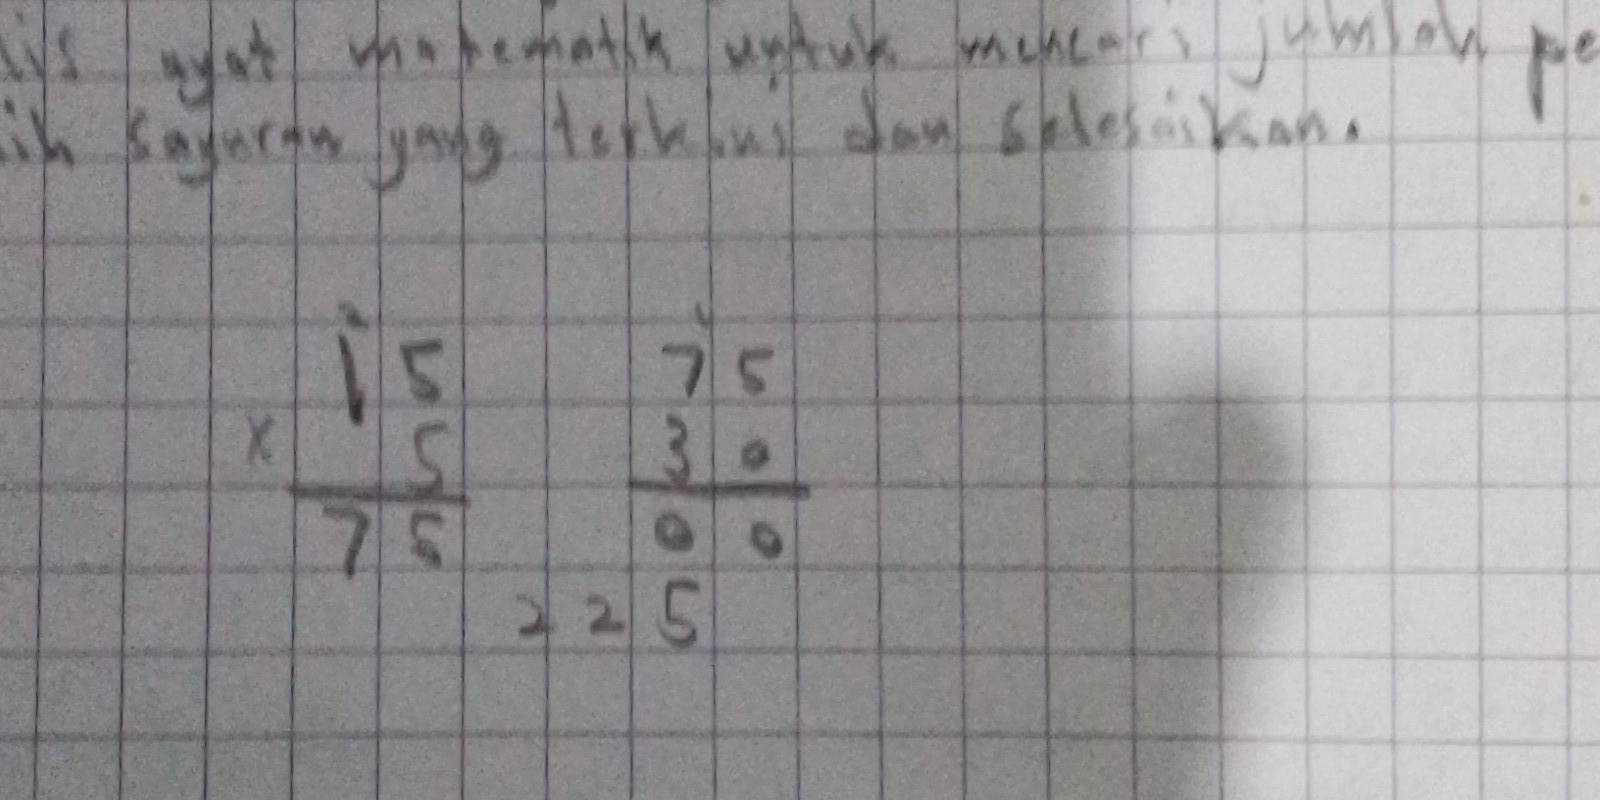 ayat matematik untuk mencari jumlah pe
sayuran yang terkini dan selesaikan.
2 1
15 75
x 5 30
75 00
225